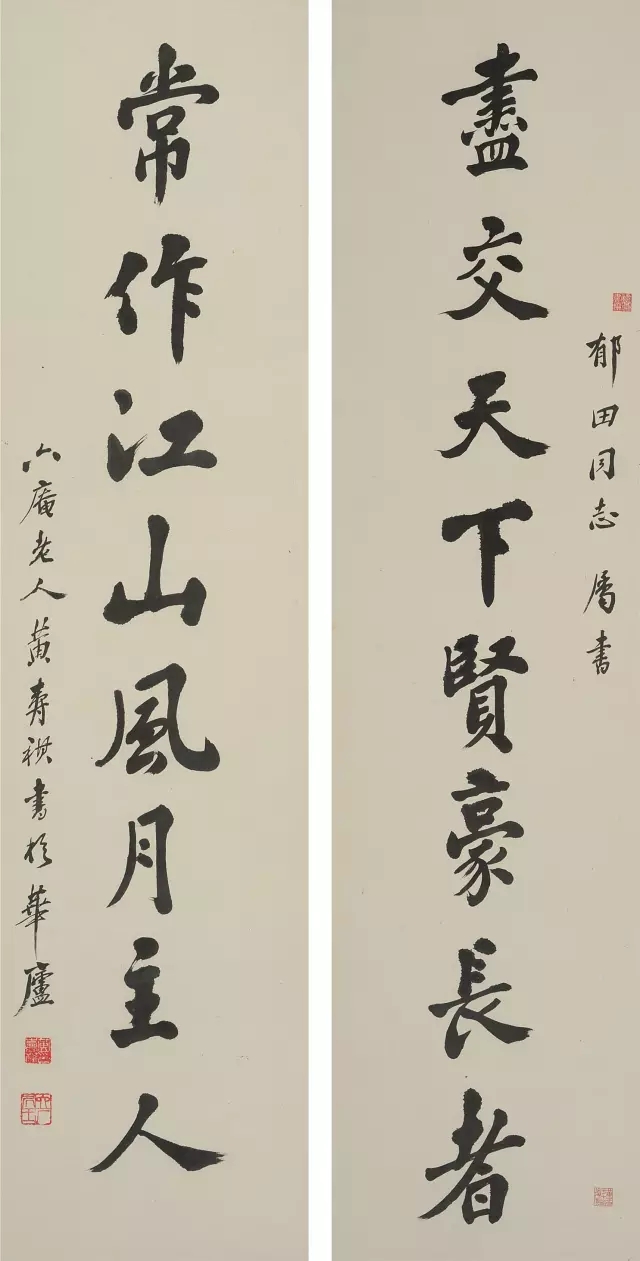 盡交天下賢豪長者
郁田同志屬書
常作江山風月主人
六庵老人黃壽祺書於華廬